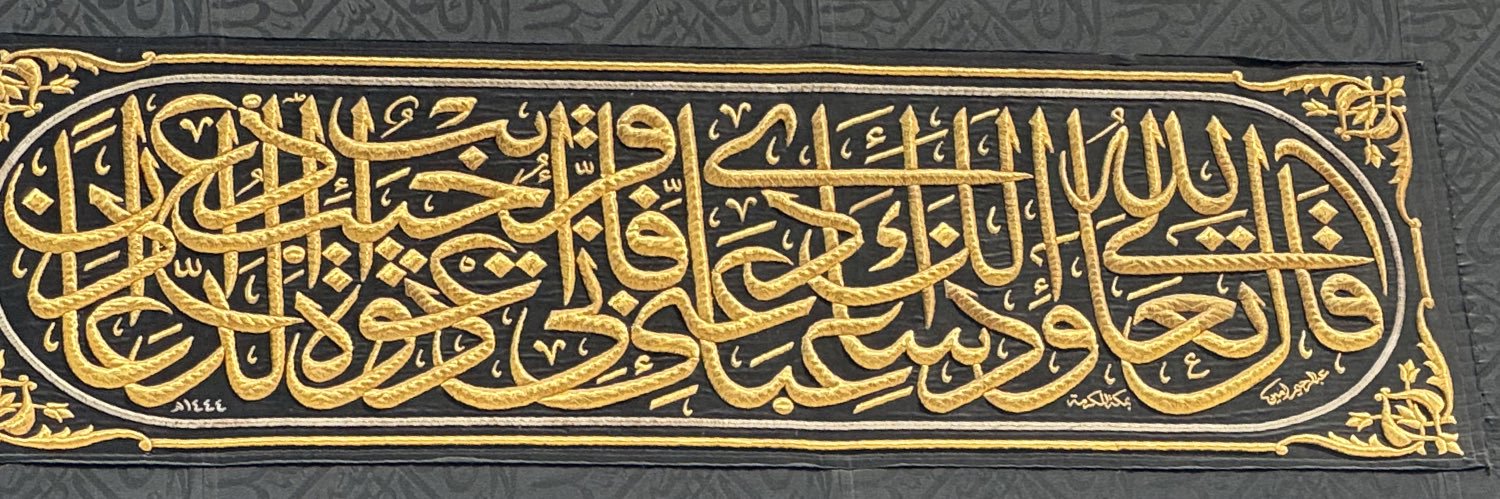 قال الله تعالى وإذا سألك عبادي عني فإني قريب أجيب دعوة الداع إذا دعان
مكة المكرمة
١٤٤٤هـ